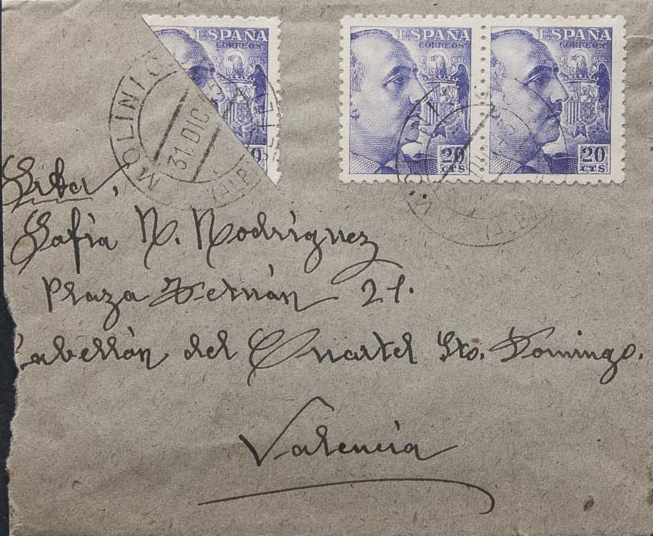 ESPAÑA
CORREOS
ESPAÑA
CORREOS
20
CTS
ESPAÑA
CORREOS
20
CTS
MOLINIC
31.DIC
Sofía N. Rodríguez
Plaza Tetuán 21.
Pabellón del Cuartel Sto. Domingo.
Valencia